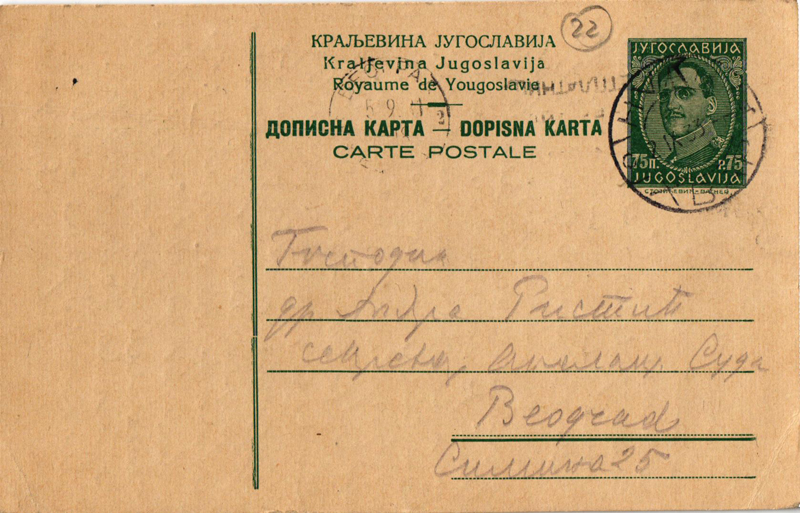 22
КРАЉЕВИНА ЈУГОСЛАВИЈА
Kraljevina Jugoslavija
Royaume de Yougoslavie
ДОПИСНА КАРТА — DOPISNA KARTA
CARTE POSTALE
ЈУГОСЛАВИЈА
75п. P.75
JUGOSLAVIJA
Господин
др Андра Ристић
Суда
Београд
Симина 25